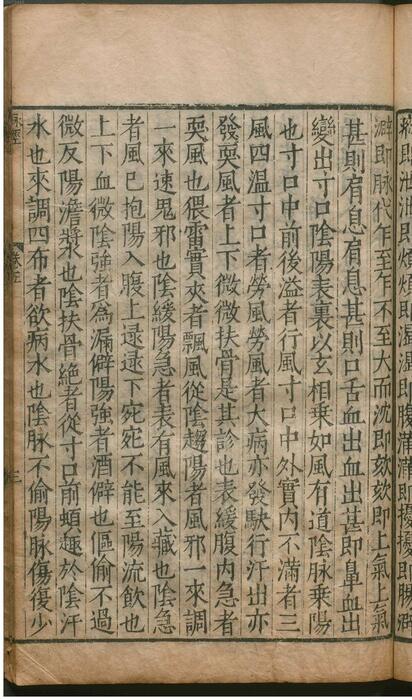 即泄泄即煩煩即渴渴即腹滿滿即擾擾即腸澼
澼即脉代乍至乍不至大而沈即欬欬即上氣上氣
甚則肩息肩息甚則口舌血出血出甚即鼻血出
變出寸口陰陽表裏以玄相乗如風有道陰脉乗陽
也寸口中前後溢者行風寸口中外實内不滿者三
風四温寸口者勞風勞風者大病亦發駃行汗出亦
發耎風者上下微微扶骨是其診也表緩腹内急者
耎風也猥雷實夾者飄風從陰趨陽者風邪一來調
一來速鬼邪也陰緩陽急者表有風來入藏也陰急
者風已抱陽入腹上逯逯下宛宛不能至陽流飲也
上下血微陰強者為漏僻陽強者酒僻也傴偷不過
微反陽澹漿也陰扶骨絶者從寸口前頓趣於陰汗
水也來調四布者欲病水也陰脉不偷陽脉傷復少